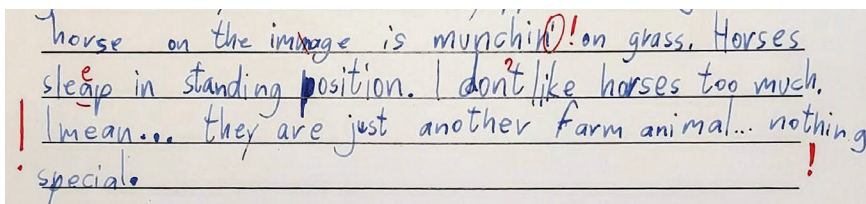 horse on the immage is munchin! on grass. Horses
sleap in standing position. I don't like horses too much.
I mean... they are just another farm animal... nothing
special.